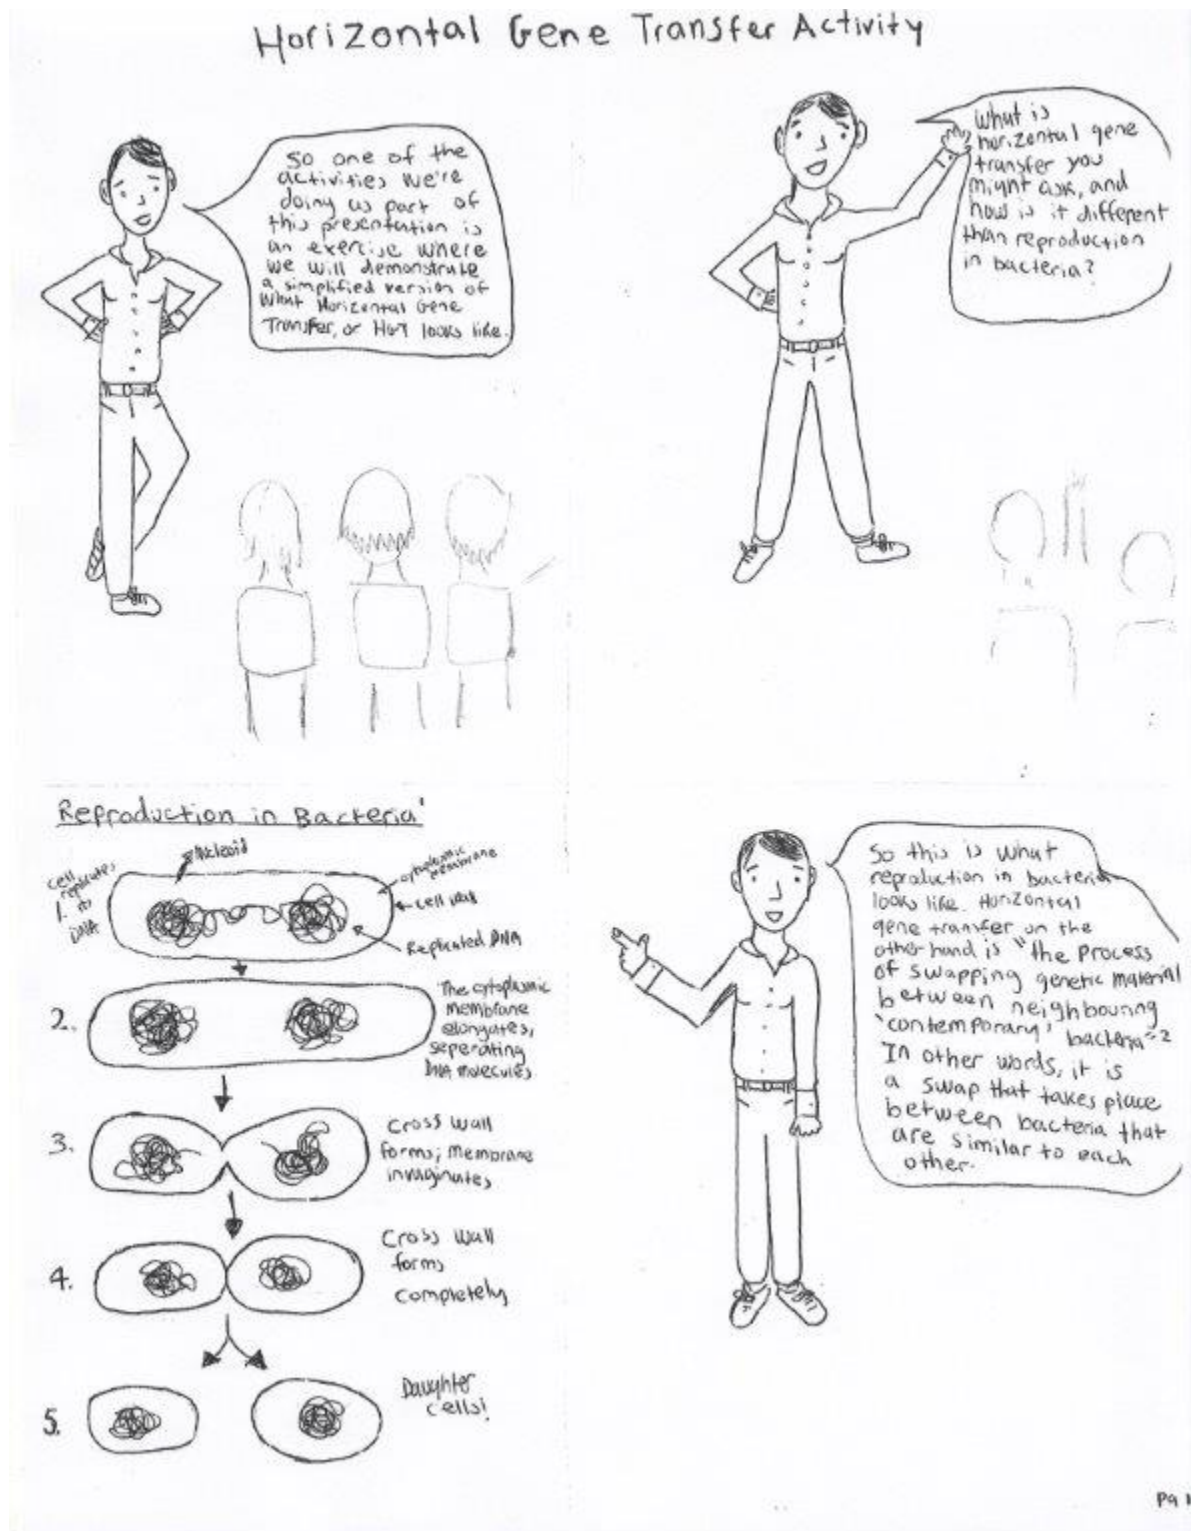 Horizontal Gene Transfer Activity
So one of the
activities we're
doing as part of
this presentation is
an exercise where
we will demonstrate
a simplified version of
what Horizontal Gene
Transfer, or HGT looks like.
What is
horizontal gene
transfer you
might ask, and
how is it different
than reproduction
in bacteria?
Reproduction in Bacteria¹
Nucleoid
cytoplasmic
membrane
cell wall
Replicated DNA
Cell
replicates
1. its
DNA
2.
The cytoplasmic
membrane
elongates,
seperating
DNA molecules
3.
Cross wall
forms; membrane
invaginates
4.
Cross wall
forms
completely
5.
Daughter
cells!
So this is what
reproduction in bacteria
looks like. Horizontal
gene transfer on the
other hand is "the process
of swapping genetic material
between neighbouring
'contemporary' bacteria"²
In other words, it is
a swap that takes place
between bacteria that
are similar to each
other.
Pg 1